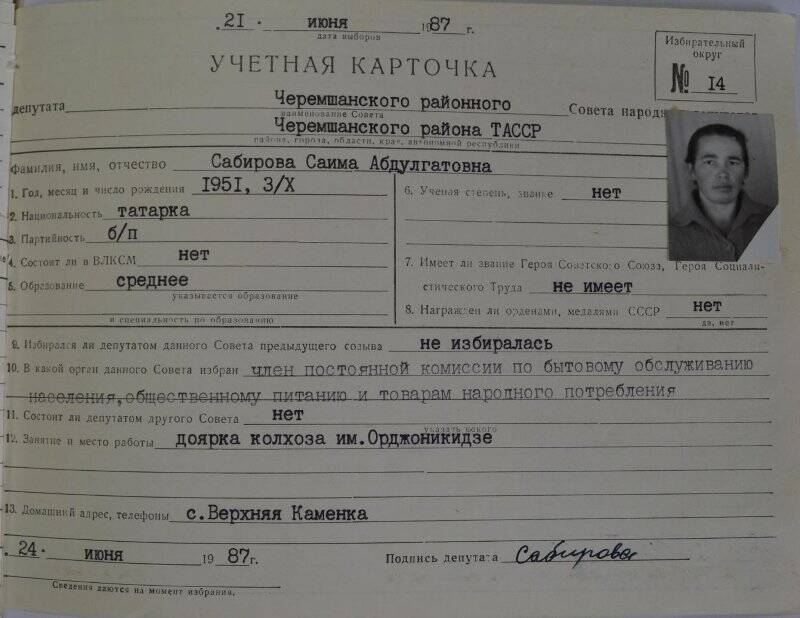 21. июня 1987 г.
дата выборов
УЧЕТНАЯ КАРТОЧКА
Избирательный
округ
№ 14
депутата Черемшанского районного Совета народных
наименование Совета
Черемшанского района ТАССР
района, города, области, края, автономной республики
Фамилия, имя, отчество Сабирова Саима Абдулгатовна
1. Год, месяц и число рождения 1951, 3/X
2. Национальность татарка
3. Партийность б/п
4. Состоит ли в ВЛКСМ нет
5. Образование среднее
указывается образование
и специальность по образованию
6. Ученая степень, звание нет
7. Имеет ли звание Героя Советского Союза, Героя Социали-
стического Труда не имеет
8. Награжден ли орденами, медалями СССР нет
да, нет
9. Избирался ли депутатом данного Совета предыдущего созыва не избиралась
10. В какой орган данного Совета избран член постоянной комиссии по бытовому обслуживанию
населения, общественному питанию и товарам народного потребления
11. Состоит ли депутатом другого Совета нет
указать какого
12. Занятие и место работы доярка колхоза им.Орджоникидзе
13. Домашний адрес, телефоны с.Верхняя Каменка
24. июня 1987г.
Подпись депутата Сабирова
Сведения даются на момент избрания.